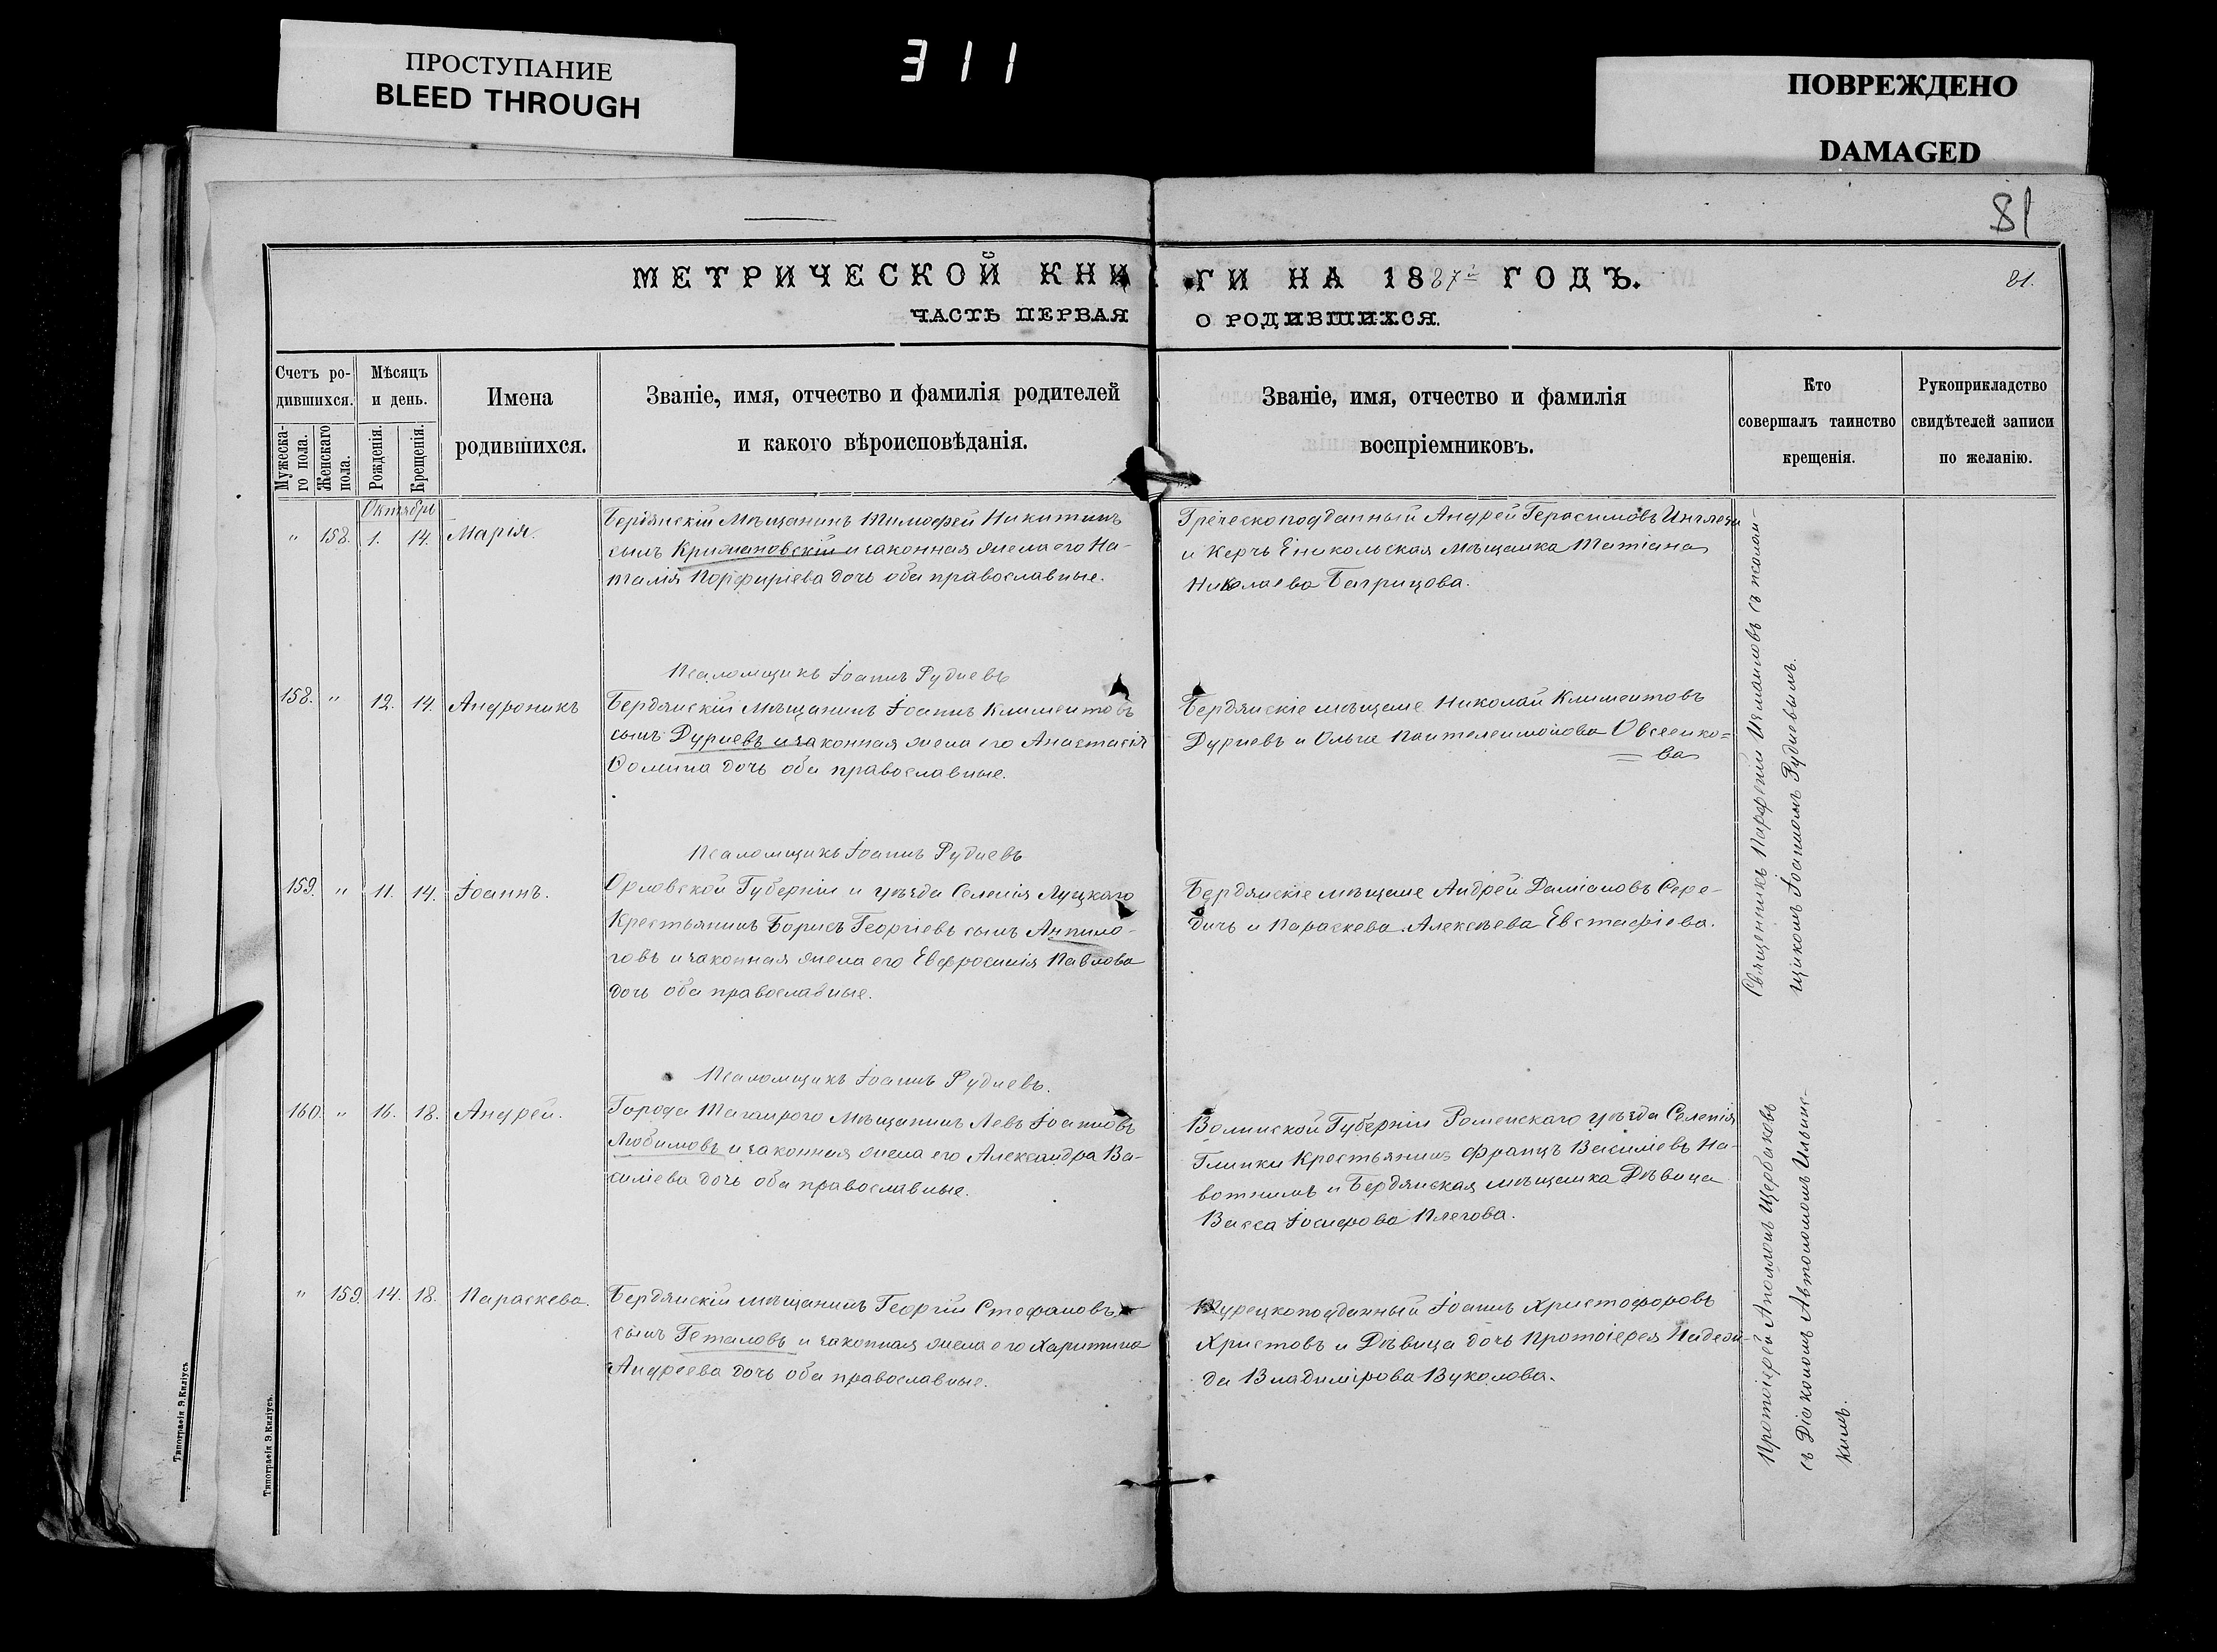 ПРОСТУПАНИЕ
BLEED THROUGH
311
ПОВРЕЖДЕНО
DAMAGED
81
МЕТРИЧЕСКОЙ КНИГИ НА 1887 ГОДЪ.
81.
ЧАСТЬ ПЕРВАЯ О РОДИВШИХСЯ.
Счетъ ро-
дившихся.
Мужеска-
го пола.
Женскаго
пола.
Мѣсяцъ
и день.
Рожденія.
Крещенія.
Имена
родившихся.
Званіе, имя, отчество и фамилія родителей
и какого вѣроисповѣданія.
Званіе, имя, отчество и фамилія
воспріемниковъ.
Кто
совершалъ таинство
крещенія.
Рукоприкладство
свидѣтелей записи
по желанію.
Октябрь
" 158. 1. 14. Марія.
Бердянскій Мѣщанинъ Тимофей Никитинъ
сынъ Крижановскій и законная жена его На-
талія Порфиріева дочь оба православные.
Греческоподданный Андрей Герасимовъ
и Керчь Еникольская Мѣщанка Татіана
Николаева Багрицова.
Псаломщикъ Іоаннъ Рудневъ
158. " 12. 14. Андроникъ
Бердянскій Мѣщанинъ Іоаннъ Климентовъ
сынъ Дурневъ и законная жена его Анастасія
Фомина дочь оба православные.
Бердянскіе мѣщане Николай Климентовъ
Дурневъ и Ольга Пантелеимонова Овсеенко=
=ва
Псаломщикъ Іоаннъ Рудневъ
159. " 11. 14. Іоаннъ.
Орловской Губерніи и уѣзда Селенія Луцкаго
Крестьянинъ Борисъ Георгіевъ сынъ Анпило-
говъ и законная жена его Евфросинія Павлова
дочь оба православные.
Бердянскіе мѣщане Андрей Даміановъ Сере-
дичь и Параскева Алексѣева Евстафіева.
Псаломщикъ Іоаннъ Рудневъ.
160. " 16. 18. Андрей.
Города Таганрога Мѣщанинъ Левъ Іоанновъ
Любимовъ и законная жена его Александра Ва-
силіева дочь оба православные.
Волынской Губерніи Роменскаго уѣзда Селенія
Глинки Крестьянинъ Францъ Василіевъ На-
вотнимъ и Бердянская мѣщанка Дѣвица
Васса Іосифова Плегова.
" 159. 14. 18. Параскева.
Бердянскій мѣщанинъ Георгій Стефановъ
сынъ Готаловъ и законная жена его Харитина
Андреева дочь оба православные.
Турецкоподданный Іоаннъ Христофоровъ
Христовъ и Дѣвица дочь Протоіерея Надеж-
да Владимірова Вуколова.
Священникъ Парфеній Измаиловъ съ псалом-
щикомъ Іоанномъ Рудневымъ.
Протоіерей Аполлонъ Щербаковъ
съ Діакономъ Автономомъ Ильинс-
кимъ.
Типографія Э.Килусъ.
Типографія Э.Килусъ.